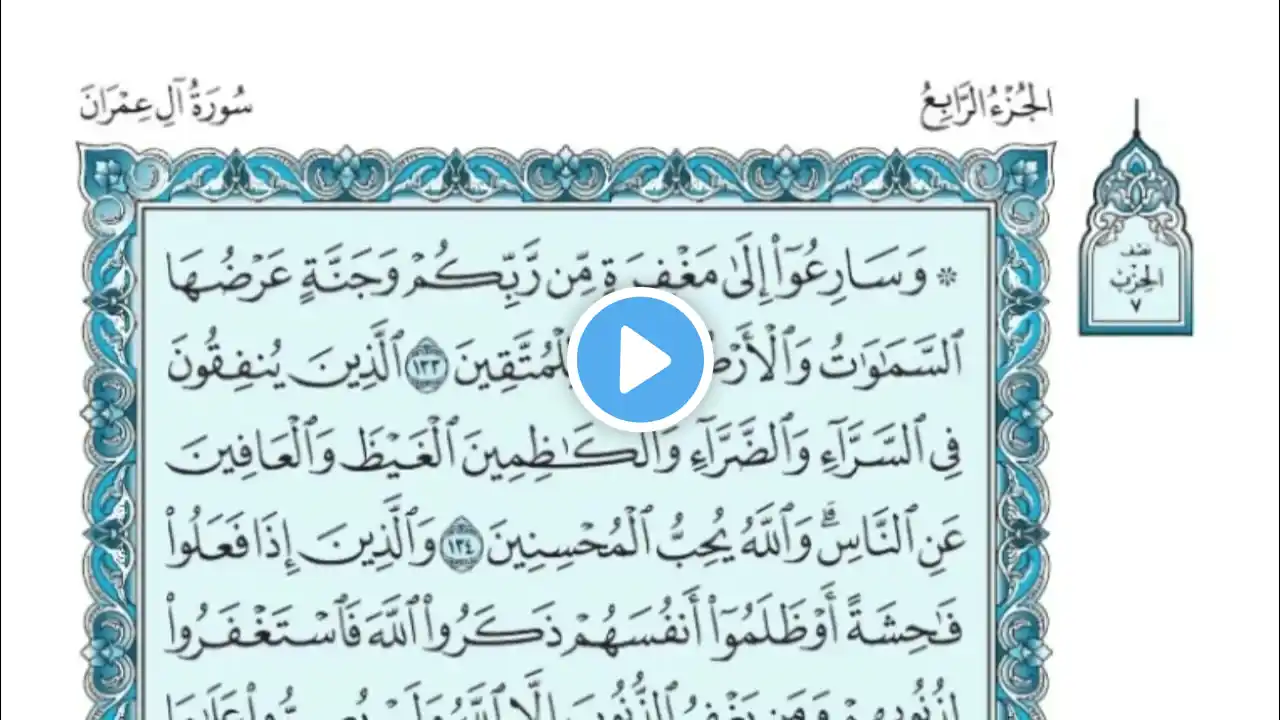 الجُزْءُ الرَّابِعُ
سُورَةُ آلِ عِمْرَانَ
نصف
الحِزْبُ
٧
* وَسَارِعُوٓا۟ إِلَىٰ مَغْفِرَةٍ مِّن رَّبِّكُمْ وَجَنَّةٍ عَرْضُهَا
ٱلسَّمَٰوَٰتُ وَٱلْأَرْضُ لِلْمُتَّقِينَ ١٣٣ ٱلَّذِينَ يُنفِقُونَ
فِى ٱلسَّرَّآءِ وَٱلضَّرَّآءِ وَٱلْكَٰظِمِينَ ٱلْغَيْظَ وَٱلْعَافِينَ
عَنِ ٱلنَّاسِ ۗ وَٱللَّهُ يُحِبُّ ٱلْمُحْسِنِينَ ١٣٤ وَٱلَّذِينَ إِذَا فَعَلُوا۟
فَٰحِشَةً أَوْ ظَلَمُوٓا۟ أَنفُسَهُمْ ذَكَرُوا۟ ٱللَّهَ فَٱسْتَغْفَرُوا۟
لِذُنُوبِهِمْ وَمَن يَغْفِرُ ٱلذُّنُوبَ إِلَّا ٱللَّهُ وَلَمْ يُصِرُّوا۟ عَلَىٰ مَا